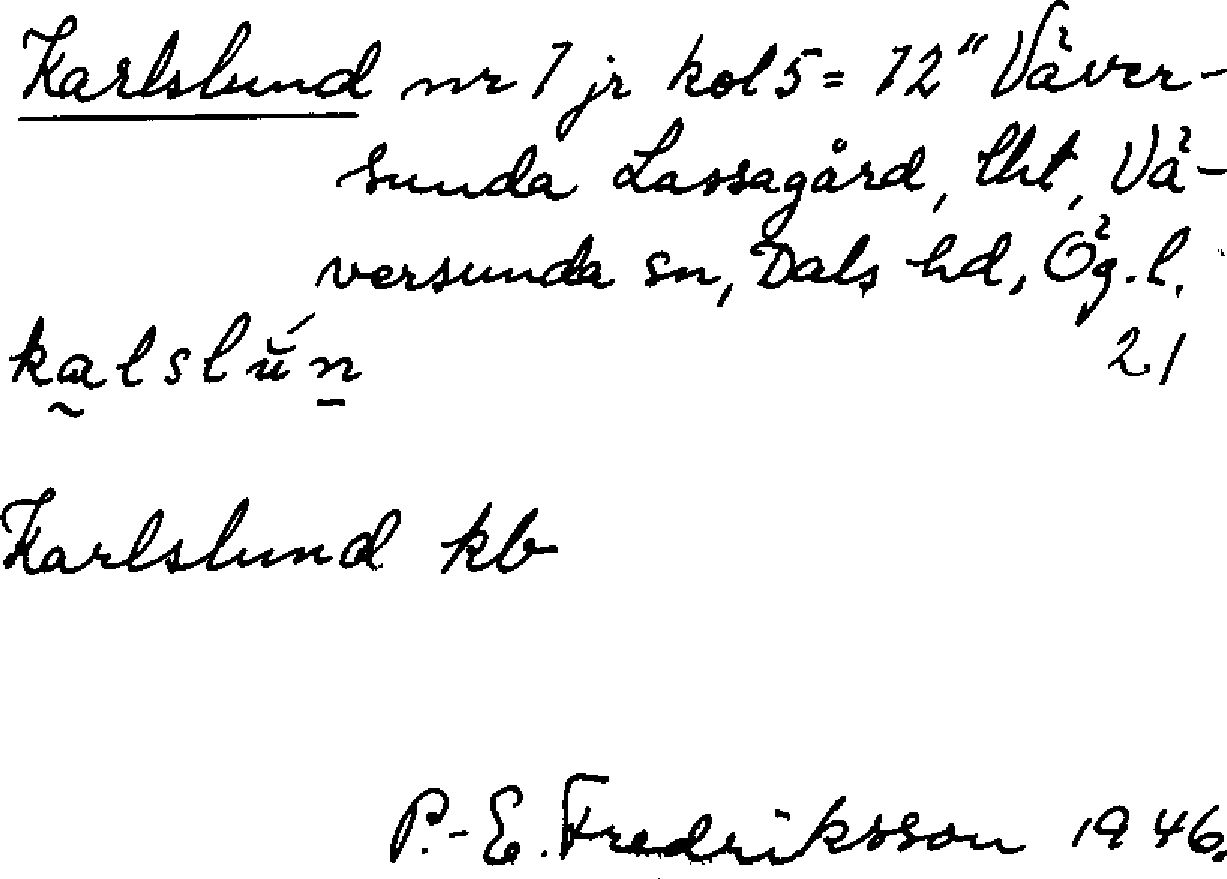 Karlslund nr 1 jr kol 5 = 12" Väver-
sunda Lassagård, lht, Vä-
versunda sn, Dals hd, Ög. l.
21
kalslŭ́n
Karlslund kb
P.-E. Fredriksson 1946.